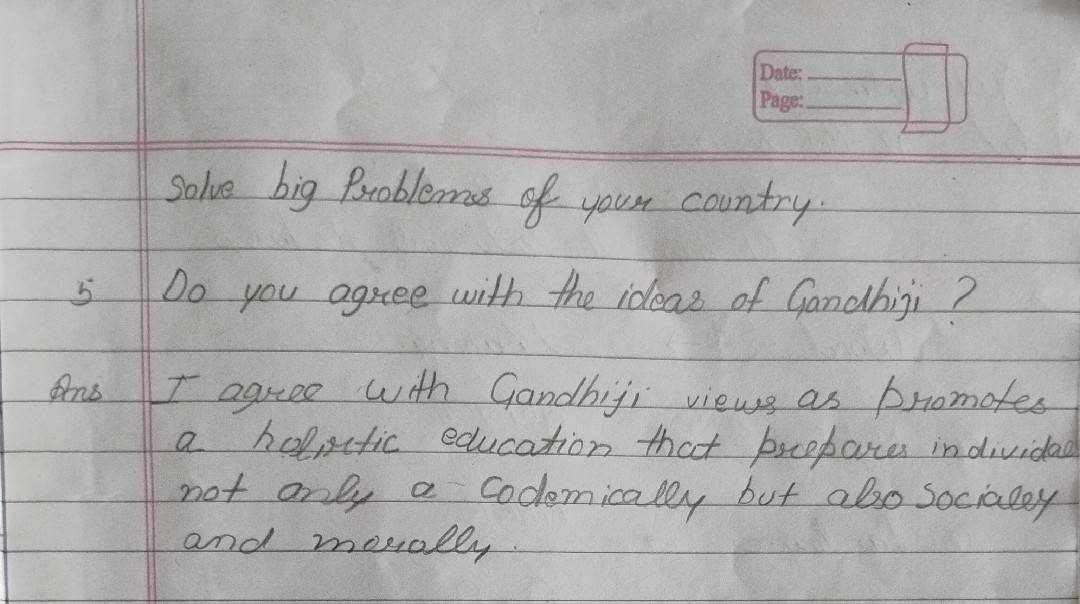 Date:
Page:
Solve big Problems of your country.
5 Do you agree with the ideas of Gandhiji ?
Ans I agree with Gandhiji views as promotes
a holistic education that prepares individual
not only a cademically but also socialey
and morally.